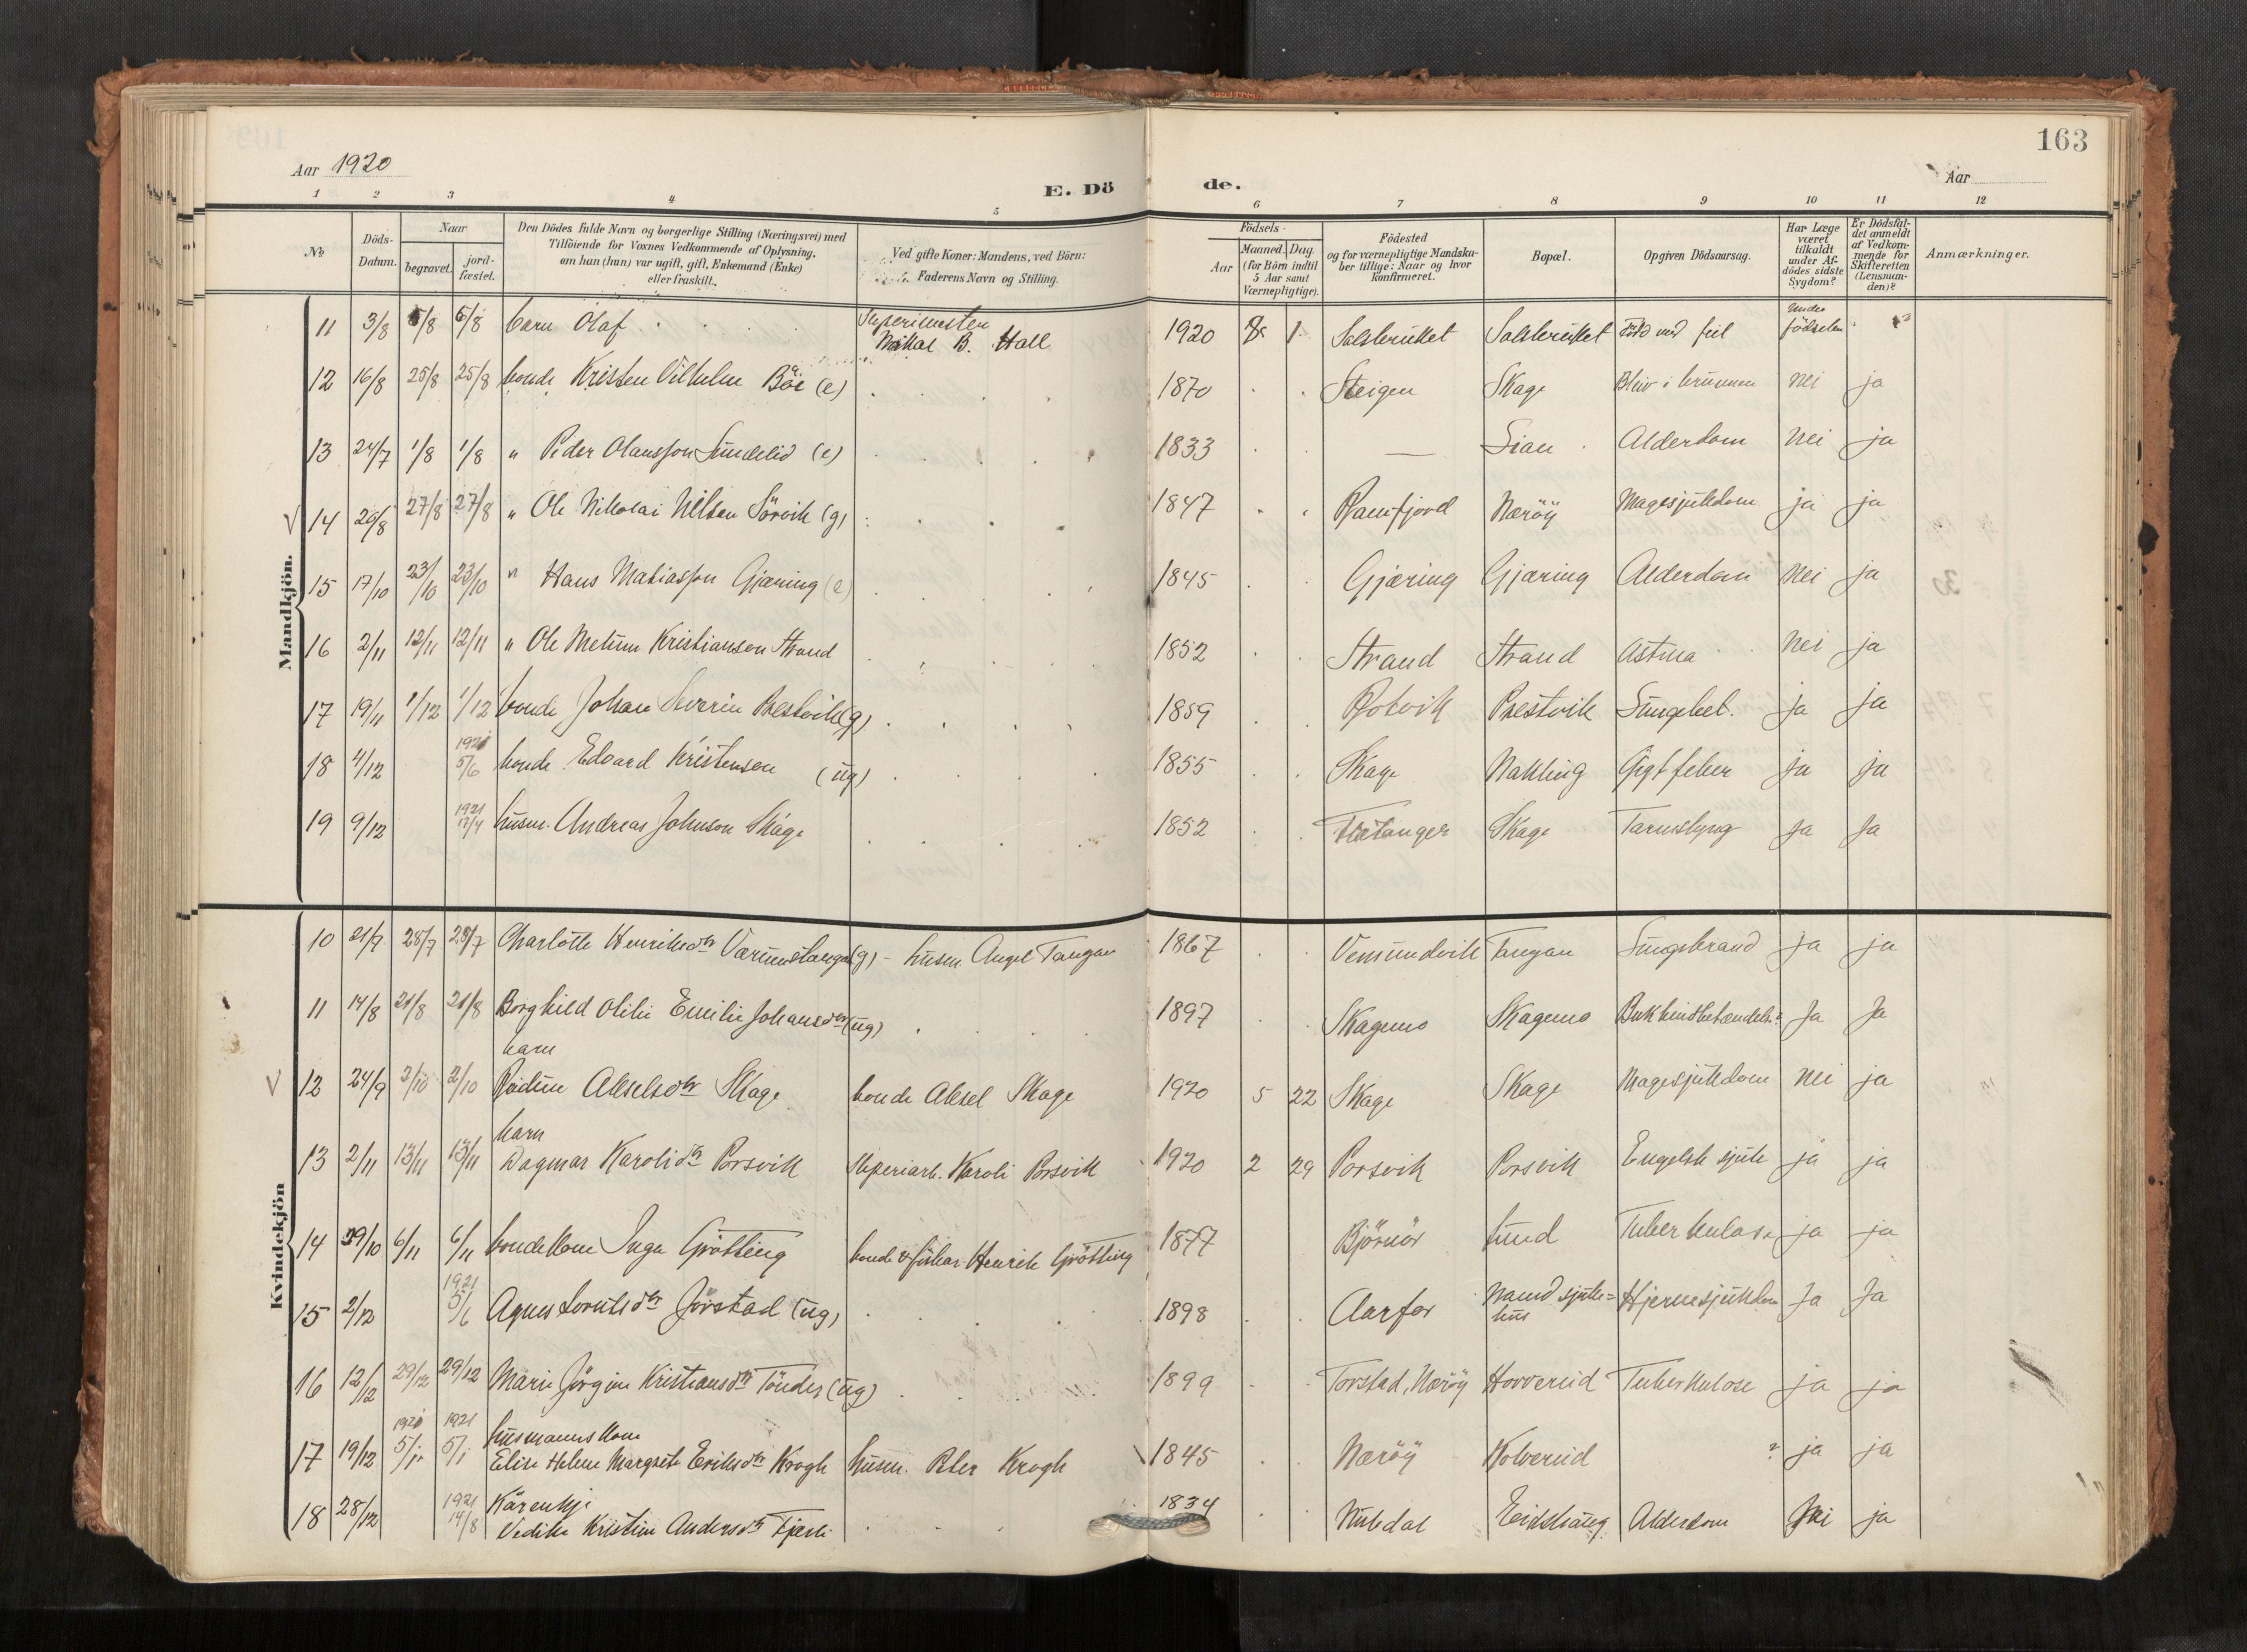 163
Aar 1920
E. Dö de.
Aar
1 2 3 4 5 6 7 8 9 10 11 12
№
Döds-Datum.
Naar
begravet.
jord-fæstet.
Den Dödes fulde Navn og borgerlige Stilling (Næringsvei) med
Tilföiende for Voxnes Vedkommende af Oplysning,
om han (hun) var ugift, gift, Enkemand (Enke)
eller fraskilt.
Ved gifte Koner: Mandens, ved Börn:
Faderens Navn og Stilling.
Födsels-
Aar
Maaned. Dag.
(for Börn indtil
5 Aar samt
Værnepligtige).
Födested
og for værnepligtige Mandska-
ber tillige: Naar og hvor
konfirmeret.
Bopæl.
Opgiven Dödsaarsag.
Har Læge
været
tilkaldt
under Af-
dödes sidste
Sygdom?
Er Dödsfal-
det anmeldt
af Vedkom-
mende for
Skifteretten
(Lensman-
den)?
Anmærkninger.
Mandkjön.
11 3/8 6/8 6/8 barn Olaf B. Hall 1920 8 1 Salsbruket Salsbruket född med feil under födselen
12 16/8 25/8 25/8 bonde Kristen Vilhelm Böe (e) 1870 Steigen Skage Bleiv i brunnen nei ja
13 24/7 1/8 1/8 " Peder Olausson Sundelid (e) 1833 — Lian Alderdom nei ja
14 20/8 27/8 27/8 " Ole Nikolai Nilsen Sörvik (g) 1847 Ramfjord Nærøy Magesjukdom ja ja
15 17/10 23/10 23/10 " Hans Matiasson Gjæring (e) 1845 Gjæring Gjæring Alderdom nei ja
16 2/11 12/11 12/11 " Ole Kristianson Strand 1852 Strand Strand Astma nei ja
17 19/11 1/12 1/12 bonde Johan Severin Prestvik (g) 1859 Rotvik Prestvik Lungebet. ja ja
18 4/12 1921 5/6 bonde Edvard Kristenson (ug) 1855 Skage Nakling Gigtfeber ja ja
19 9/12 1921 17/4 husm. Andreas Johnson Skage 1852 Skage Tarmslyng ja ja
Kvindekjön
10 21/7 28/7 28/7 Charlotte Henriksdtr (g) - husm. Angel Tangan 1867 Vemundvik Tangan Lungebrand ja ja
11 14/8 21/8 21/8 Borghild Olilie Emilie Johansdtr (ug) 1897 Skagemo Skagemo Bukhindbetændelse ja ja
barn
12 24/9 2/10 2/10 Akselsdtr Skage bonde Aksel Skage 1920 5 22 Skage Skage Magesjukdom nei ja
barn
13 2/11 13/11 13/11 Dagmar Karolidtr Porsvik Karoli Porsvik 1920 2 29 Porsvik Porsvik Engelsk sjuke ja ja
14 29/10 6/11 6/11 bondekone Inga Gröttling bonde & fiskar Henrik Gröttling 1877 Björnör Lund Tuberkulose ja ja
15 2/12 1921 5/6 Agnes Lorntsdtr Jörstad (ug) 1898 Aarfor Namd sjukehus Hjernesjukdom ja ja
16 12/12 29/12 29/12 Marie Jörgine Kristiansdtr Tönder (ug) 1899 Torstad, Nærøy Horvereid Tuberkulose ja ja
husmannskone
17 19/12 1921 5/1 1921 5/1 Elise Helene Margrete Eriksdtr Krogh husm. Peter Krogh 1845 Nærøy Kolvereid ? ja ja
18 28/12 1921 14/8 Kårenkje
Vedike Kristine Andersdtr Fjærli 1834 Nubdal Eidshaug Alderdom nei ja